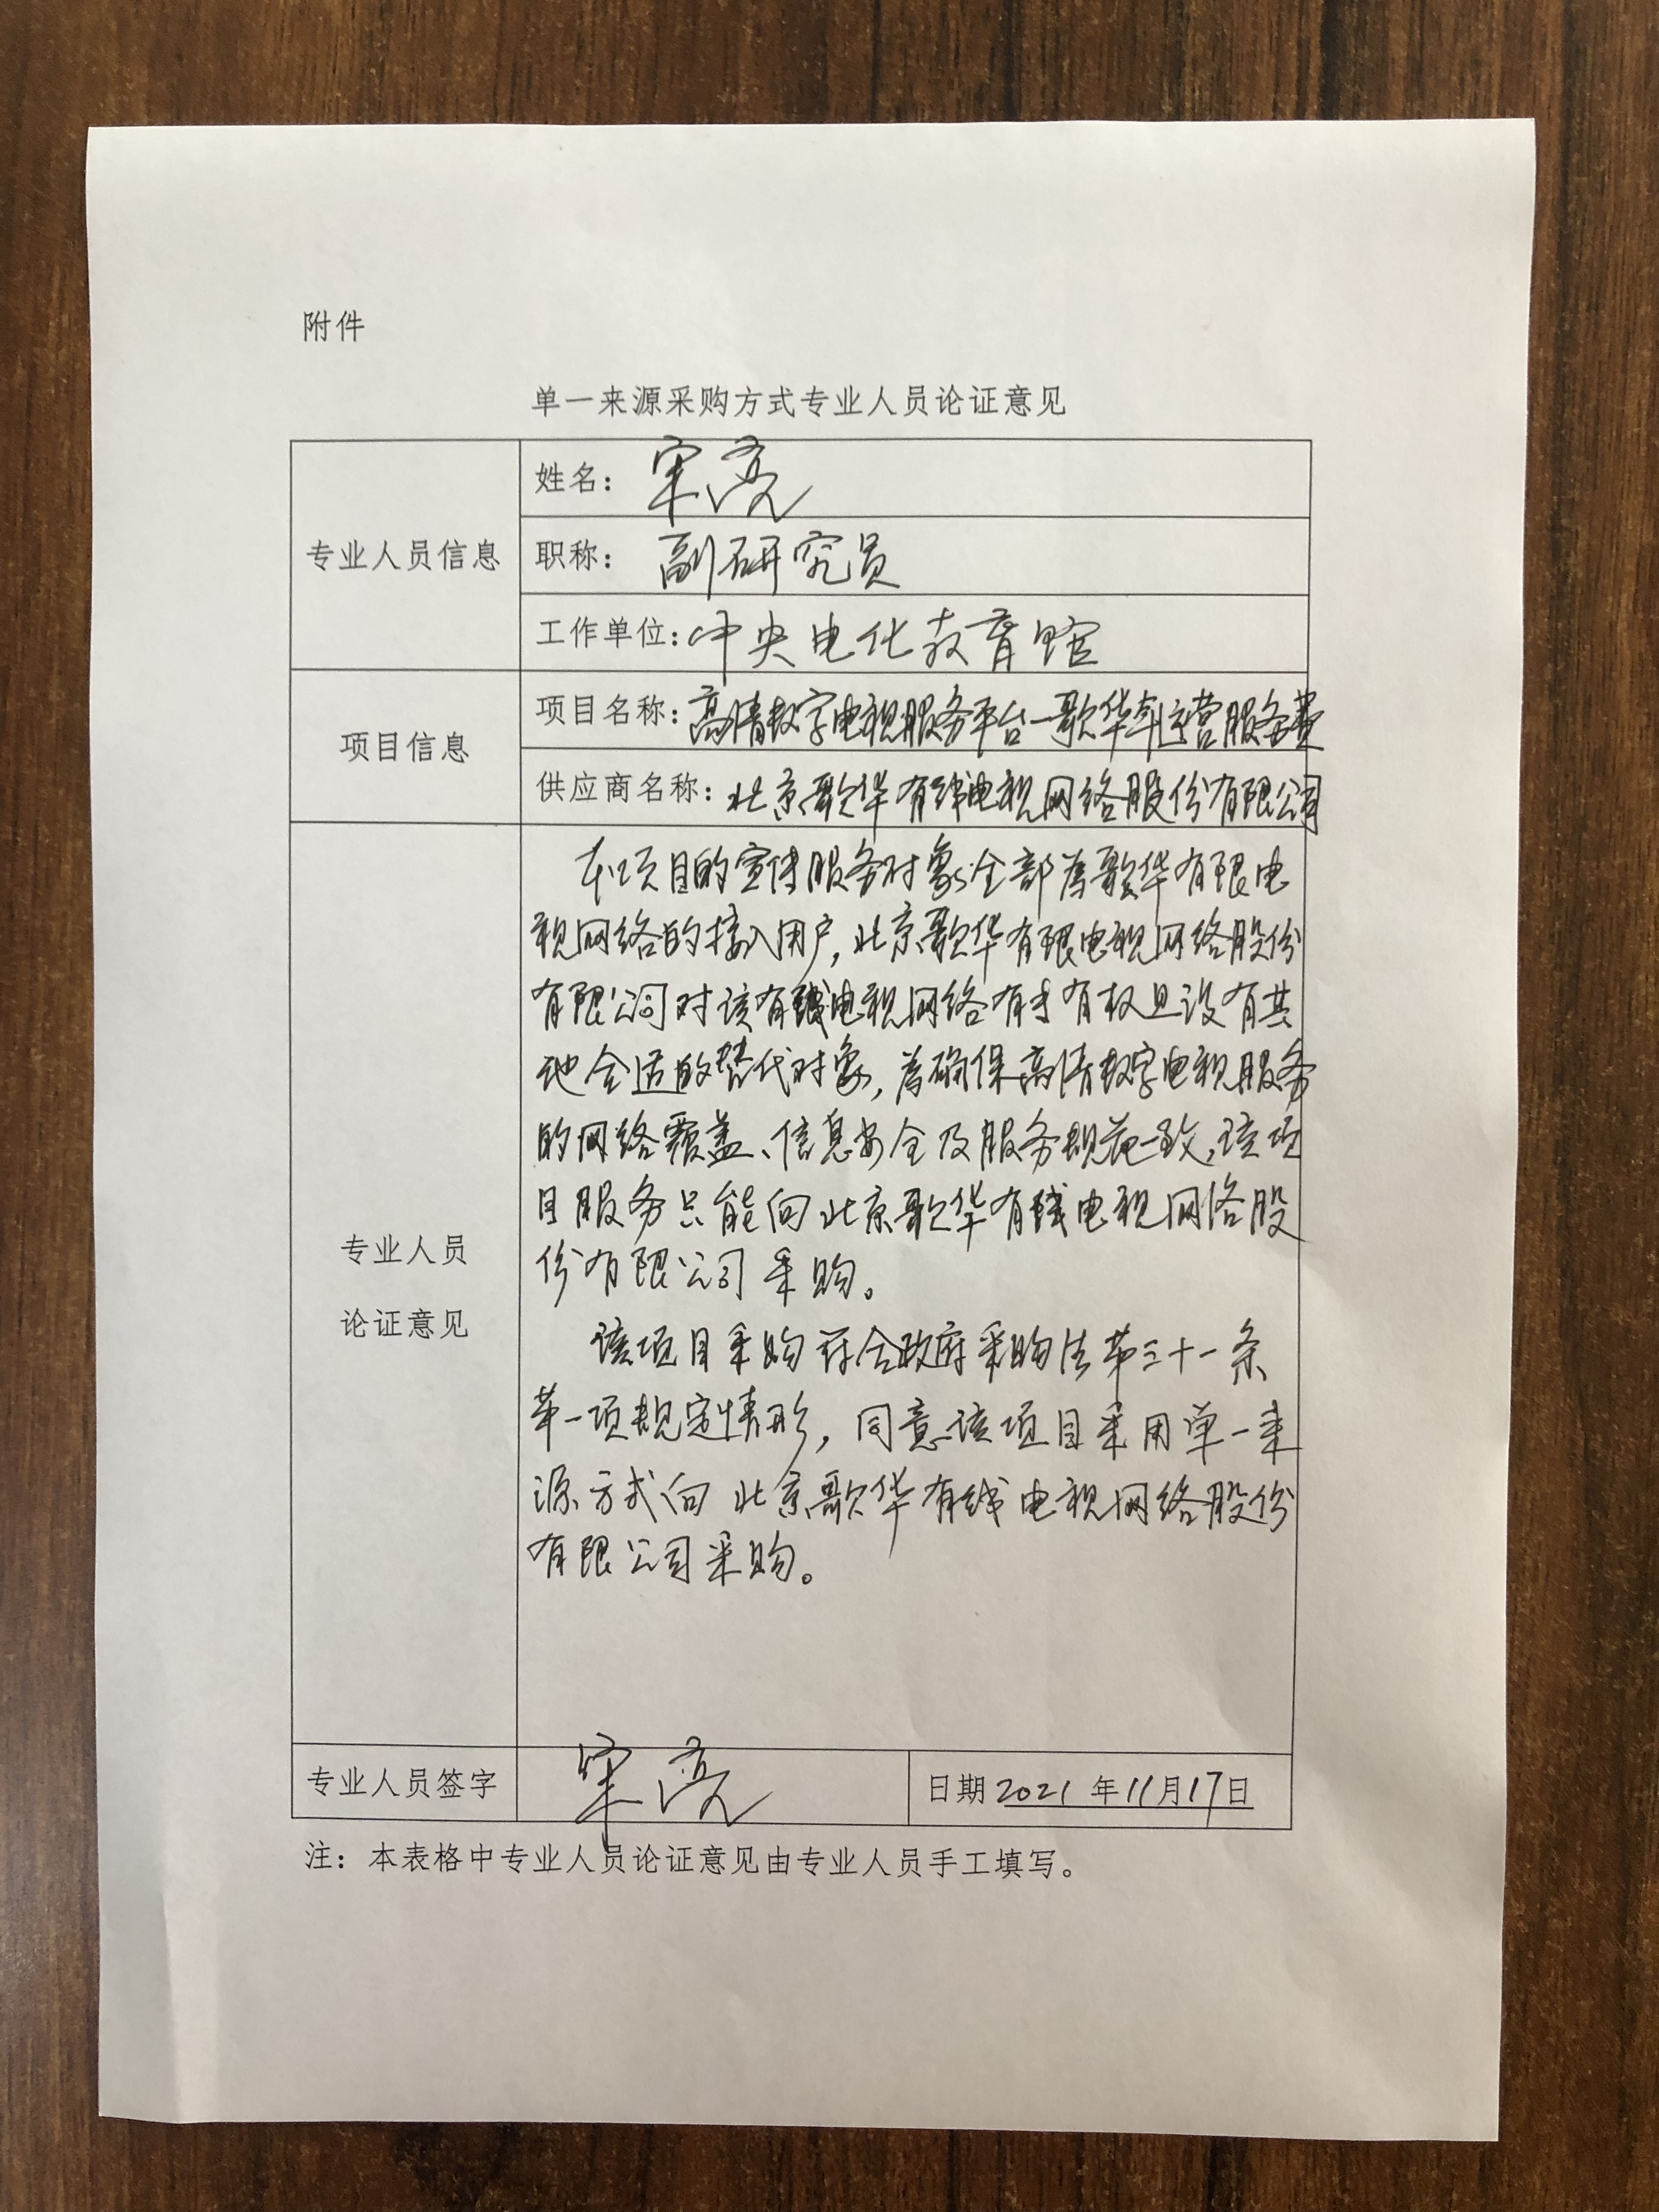 附件
单一来源采购方式专业人员论证意见
专业人员信息
姓名：宋亮
职称：副研究员
工作单位：中央电化教育馆
项目信息
项目名称：高清数字电视服务平台—歌华年运营服务费
供应商名称：北京歌华有线电视网络股份有限公司
专业人员
论证意见
本项目的宣传服务对象全部为歌华有限电
视网络的接入用户，北京歌华有限电视网络股份
有限公司对该有线电视网络有才有权且没有其
他合适的替代对象，为确保高清数字电视服务
的网络覆盖、信息安全及服务规范一致，该项
目服务只能向北京歌华有线电视网络股
份有限公司采购。
该项目采购符合政府采购法第三十一条
第一项规定情形，同意该项目采用单一来
源方式向北京歌华有线电视网络股份
有限公司采购。
专业人员签字
宋亮
日期2021年11月17日
注：本表格中专业人员论证意见由专业人员手工填写。